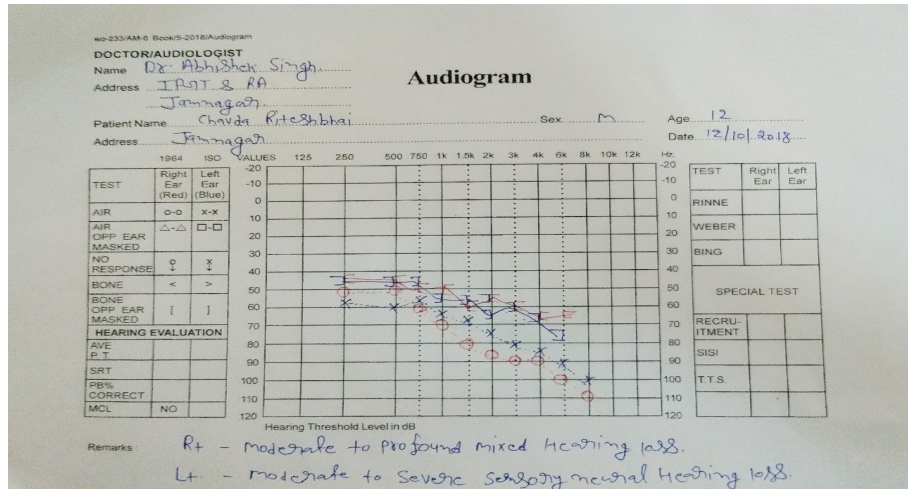 wo-233/AM-8 Book/5-2018/Audiogram
DOCTOR/AUDIOLOGIST
Name Dr. Abhishek Singh.
Address IPGT & RA
Jamnagar.
Audiogram
Patient Name Chavda Riteshbhai Sex M Age 12
Address Jamnagar Date 12/10/2018
1964 ISO VALUES 125 250 500 750 1k 1.5k 2k 3k 4k 6k 8k 10k 12k Hz.
TEST Right Ear (Red) Left Ear (Blue)
AIR o-o x-x
AIR OPP EAR MASKED △-△ □-□
NO RESPONSE
BONE < >
BONE OPP EAR MASKED [ ]
HEARING EVALUATION
AVE P.T.
SRT
PB% CORRECT
MCL NO
-20 -20
-10 -10
0 0
10 10
20 20
30 30
40 40
50 50
60 60
70 70
80 80
90 90
100 100
110 110
120 120
TEST Right Ear Left Ear
RINNE
WEBER
BING
SPECIAL TEST
RECRU-
ITMENT
SISI
T.T.S.
Hearing Threshold Level in dB
Remarks Rt - moderate to profound mixed Hearing loss.
Lt. - moderate to severe sensory neural Hearing loss.